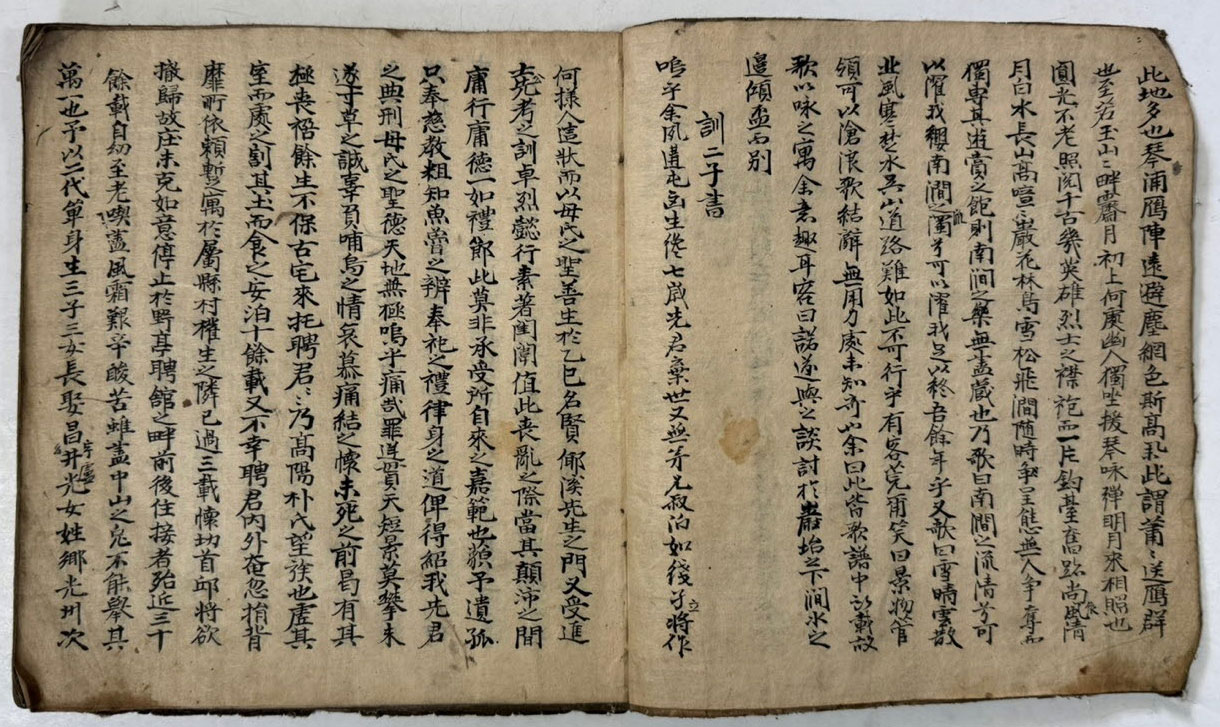 此地多也琴浦鴈陣遠避塵網色斯高飛此謂莆〻送鴈群
也至若玉山〻畔霽月初上何處幽人獨坐援琴咏彈明月來相照也
圓光不老照閱千古幾英雄烈士之襟袍而一片釣臺舊跡尚風淸
月白水長山高喧〻巖花林鳥雪松飛澗隨時呈態無人爭奪而
獨專其遊賞之飽則南澗之樂無盡藏也乃歌曰南澗之流淸兮可
以濯我纓南澗之流濁兮可以濯我足以終吾餘年乎又歌曰雪晴雲散
北風寒楚水吳山道路難如此不可行乎有客莞爾笑曰景物管
領可以滄浪歌結辭無用力處未知可以余曰此皆歌譜中所載故
歌以咏之寓余意趣耳客曰諾遂與之談討於巖坮之下澗水之
邊傾盃而別
訓二子書
嗚乎余夙遘屯凶生終七歲先君棄世又無兄叔泊如綫孑立將作
何樣人造狀而以母氏之聖善生於乙巳名賢 溪先生之門又受進
士先考之訓卓烈懿行素著閨閫值此喪亂之際當其顚沛之間
庸行庸德一如禮節此莫非承受所自來之嘉範也藐予遺孤
只奉慈敎粗知魚魯之辨奉祀之禮律身之道俾得紹我先君
之典刑母氏之聖德天地無極嗚乎痛哉罪逆貫天短景莫攀未
遂寸草之誠辜負哺烏之情哀慕痛結之懷未死之前曷有其
極喪禍餘生不保古宅來托聘君〻乃高陽朴氏望族也虛其
室而處之割其土而食之安泊十餘載又不幸聘君內外奄忽捐背
靡所依賴暫寓於屬縣村權生之隣已過三載懷切首邱將欲
撤歸故庄未克如意停止於野亭聘館之畔前後住接者殆近三十
餘載自幼至老喫盡風霜艱辛酸苦雖盡中山之兔不能擧其
萬一也予以二代單身生三子三女長娶昌 光女姓鄉光州次